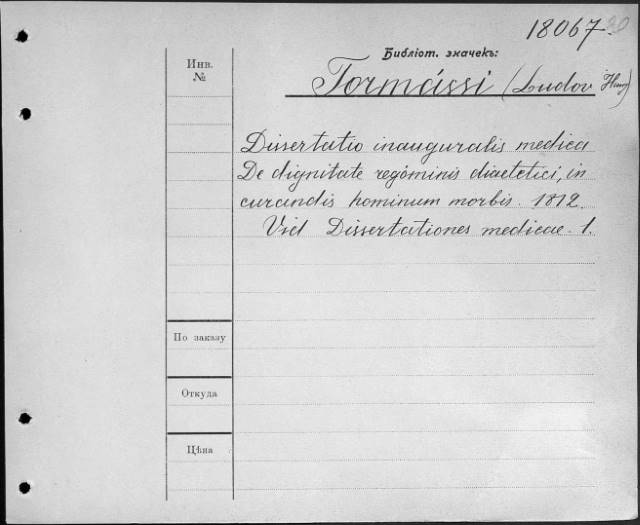 18067
Инв.
№
Библіот. значекъ:
Tormássi (Ludov Hung)
Dissertatio inauguralis medica
De dignitate regòminis diaetetici, in
curandis hominum morbis. 1812.
Vid Dissertationes medicae. 1.
По заказу
Откуда
Цѣна